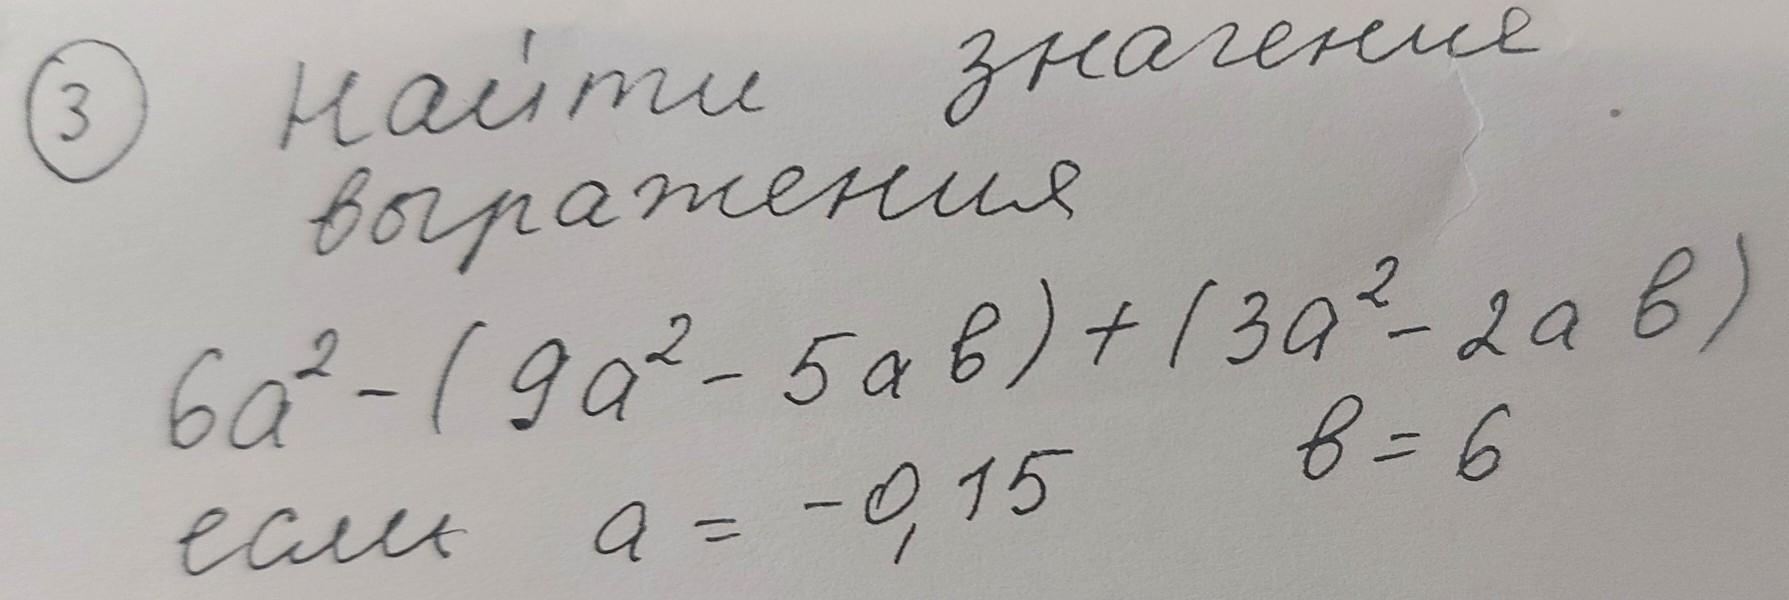 ③ Найти значение
выражения
6a² - (9a² - 5a в) + (3a² - 2a в)
если a = -0,15 в = 6